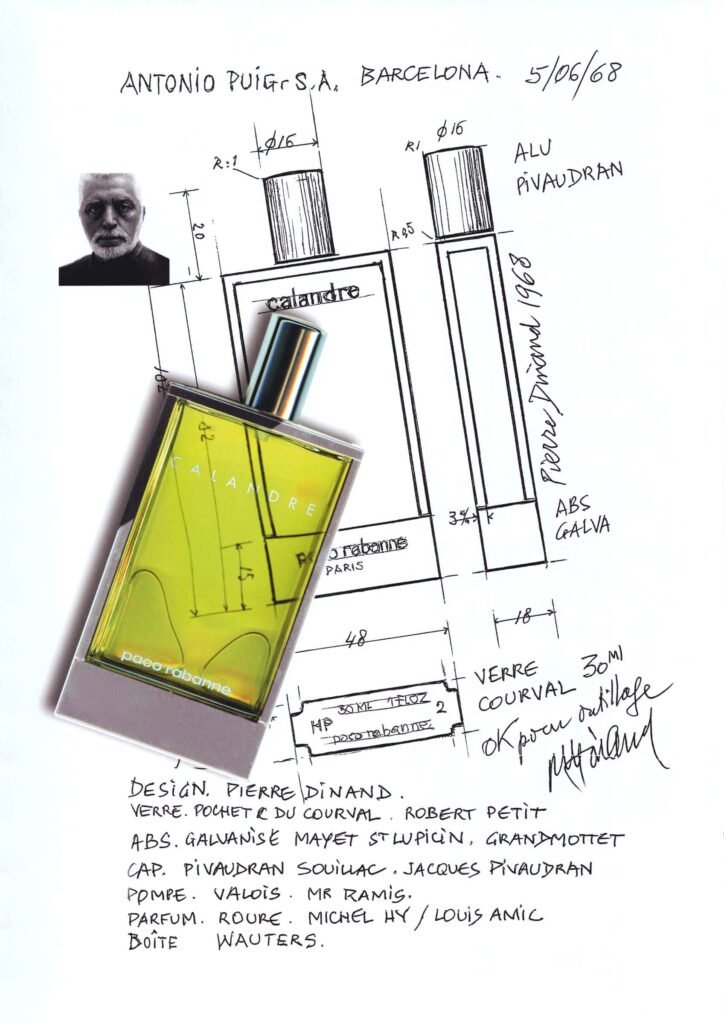 ANTONIO PUIG S.A. BARCELONA. 5/06/68
Ø16
R:1
20
Ø16
R1
ALU
PIVAUDRAN
R 0,5
calandre
Pierre Dinand 1968
107
82
CALANDRE
3%
ABS
GALVA
paco rabanne
PARIS
15
paco rabanne
48
18
VERRE 30 ml
COURVAL
OK pour outillage
30 ML 1 FLOZ
HP 2
paco rabanne
DESIGN. PIERRE DINAND.
VERRE. POCHET & DU COURVAL. ROBERT PETIT
ABS. GALVANISÉ MAYET ST LUPICIN. GRANDMOTTET
CAP. PIVAUDRAN SOUILLAC. JACQUES PIVAUDRAN
POMPE. VALOIS. MR RAMIS.
PARFUM. ROURE. MICHEL HY / LOUIS AMIC
BOÎTE WAUTERS.